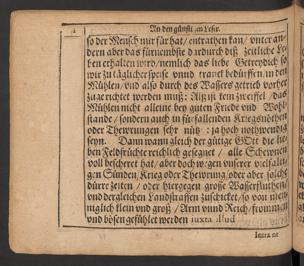 An den günstigen Leser.
so der Mensch nur für hat / entrathen kan / unter an-
dern aber das fürnembste dardurch diß zeitliche Le-
ben erhalten wird / nemlich das liebe Getreydich so
wir zu täglicher speise vnnd tranck bedürffen, in den
Mühlen / vnd also durch des Wassers getrieb vorher
zugerichtet werden muß: Als ist kein zweiffel / das
Mühlen nicht alleine bey guten Friede vnd Wohl-
stande / sondern auch in fürfallenden Kriegsnöthen
oder Thewrungen sehr nütz: ja hoch nothwendig
seyn. Dann wann gleich der gütige GOtt die lie-
ben Feldfrüchte reichlich gesegnet / alle Schewnen
voll bescheret hat / aber doch wegen vnserer vielfalti-
gen Sünden, Krieg oder Thewrung oder aber solche
dürre zeiten / oder hiergegen grosse Wasserfluthen /
vnd dergleichen Landstraffen zuschicket / so von men-
niglich klein vnd groß / Arm vnnd Reich / frommen
vnd bösen gefühlet werden iuxta illud